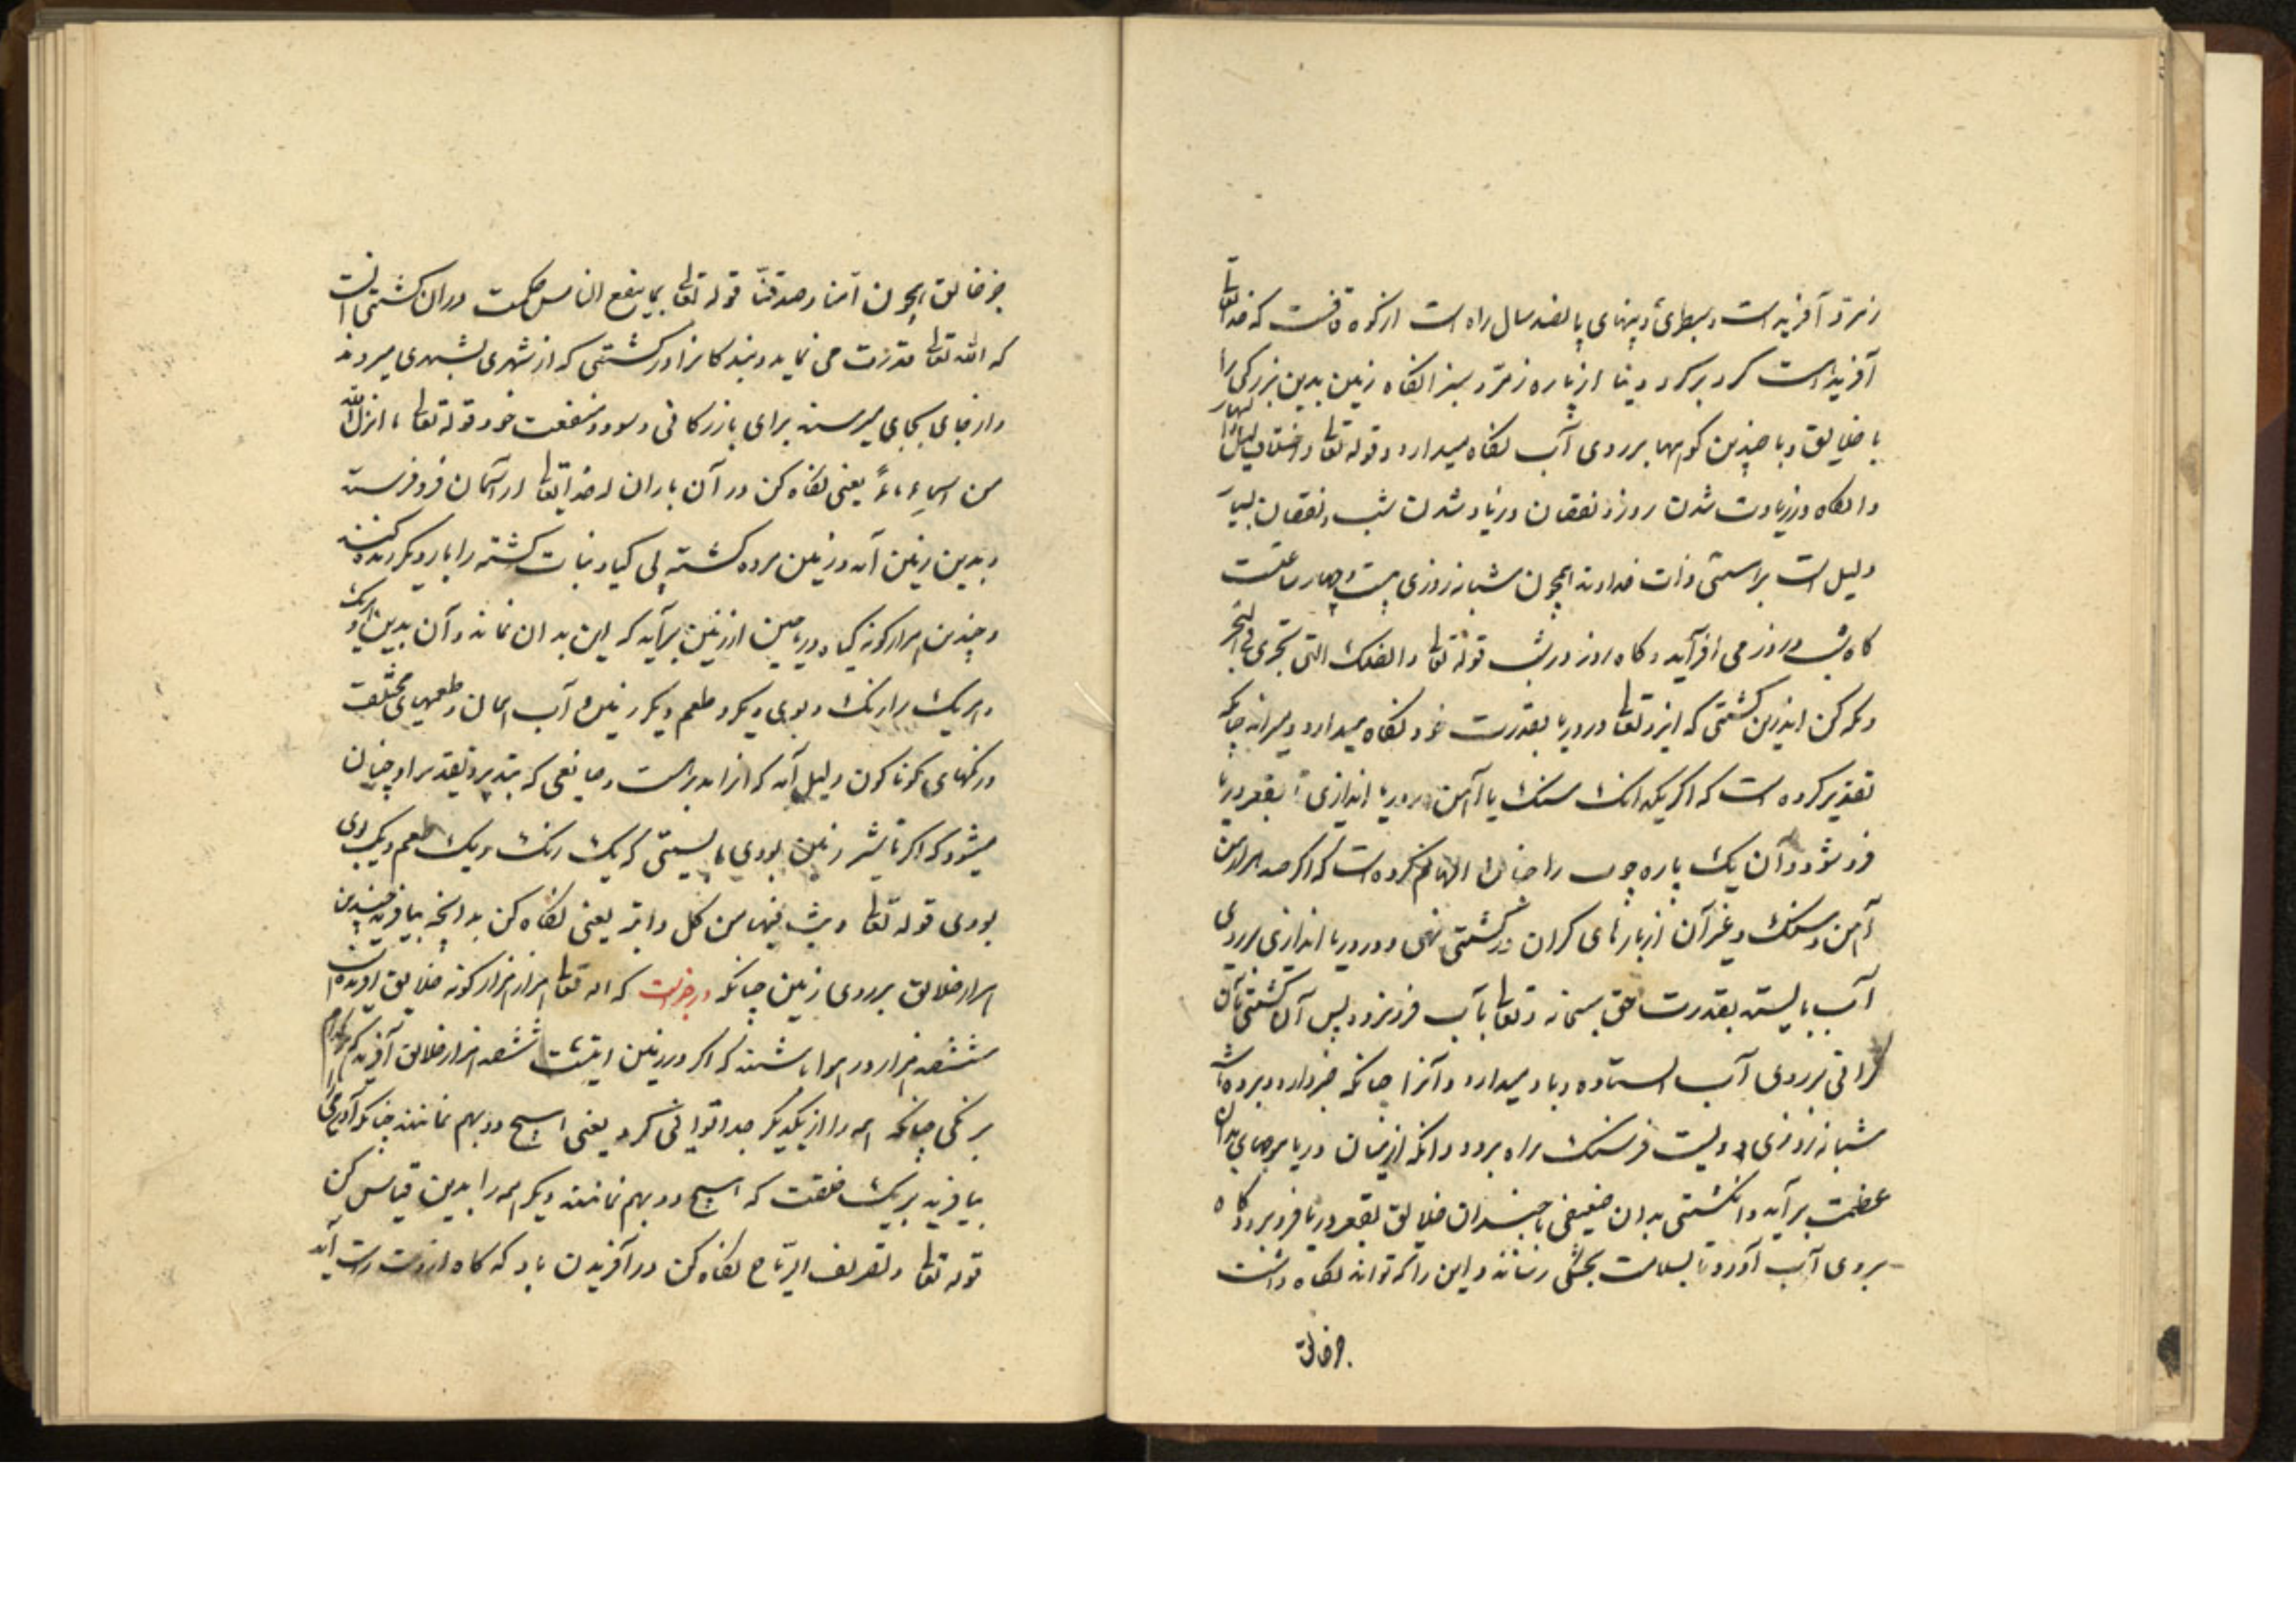 زمرد آفریده است و بسطبری و پهنای پانصد سال راه است از کوه قافست که خدایتعا
آفریده است کرد بر کرد دنیا از پاره زمرد سبز انکاه زمین بدین بزرکی را
با خلایق و با چندین کوهها بر روی آب نکاه میدارد و قوله تعا واختلاف اللیل والنهار
وانکاه در زیادت شدن روز و نقصان و زیاد شدن شب و نقصان
دلیل است براستی ذات خداوند بیچون شبانه روزی بیست و چهار ساعتست
کاه شب در روز می افزاید و کاه روز در شب قوله تعا والفلک التی تجری فی البحر
ونکه کن اندرین کشتی که ایزد تعا در دریا بقدرت خود نکاه میدارد و میراند چنانکه
تقدیر کرده است که اکر یکدانک سنک یا آهن در دریا اندازی تا بقعر دریا
فرو شود و آن یک پاره چوب را چنان الهام کرده است که اکر صد هزار من
آهن و سنک و غیر آن از بارهای کران در کشتی نهی و در دریا اندازی بر روی
آب بایستد بقدرت حق سبحانه و تعا بآب فرو نرود پس آن کشتی بآن
کرانی بر روی آب ایستاده و باد میدارد و آنرا چنانکه خبر دارد و برده است
شبانه روزی دویست فرسنک راه برود وانکه از میان دریا موجهای بدان
عظمت برآید وانکشتی بدان ضعیفی با چندان خلایق بقعر دریا فرو برد و کاه
بروی آب آورد تا بسلامت بخشکی رساند و این را که تواند نکاه داشت
جز خالق
جز خالق بیچون آمنا و صدقنا قوله تعا بما ینفع الناس حکمت در آن کشتی آنست
که الله تعا قدرت می نماید و بندکانرا در کشتی که از شهری بشهری میروند
و از جای بجای میرسند برای بازرکانی و سود و منفعت خود قوله تعا ما انزل الله
من السماءِ ماءً یعنی نکاه کن در آن باران که خدایتعا از آسمان فرو فرستد
و بدین زمین آمد و زمین مرده کشته بی کیاه و نبات کشته را بار دیکر زنده کند
و چندین هزار کونه کیاه و ریاحین از زمین برآید که این بدان نماند و آن بدین و هریک
و هریک را رنک و بوی دیکر و طعم دیکر زمین و آب همان و طعمهای مختلف
و رنکهای کوناکون دلیل آمد که از اندبر است و صانعی که بتدبیر و تقدیر او چنان
میشود که اکر تأثیر زمین بودی بایستی که یک رنک و یک طعم و یک بوی
بودی قوله تعا وبث فیها من کل دابة یعنی نکاه کن بدانچه بیافرید چندین
هزار خلایق بر روی زمین چنانکه در خبر است که الله تعا هزار هزار کونه خلایق آفریده است
ششصد هزار در هوا باشند که اکر در زمین ششصد هزار خلایق آفرید هر کدام
برنکی چنانکه همه را از یکدیکر جدا توانی کرد یعنی هیچ دو بهم نمانند چنانکه آدمی را
بیافرید بر یک خلقت که هیچ دو بهم نمانند دیکر همه را بدین قیاس کن
قوله تعا وتصریف الریاح نکاه کن در آفریدن باد که کاه از دست راست آید